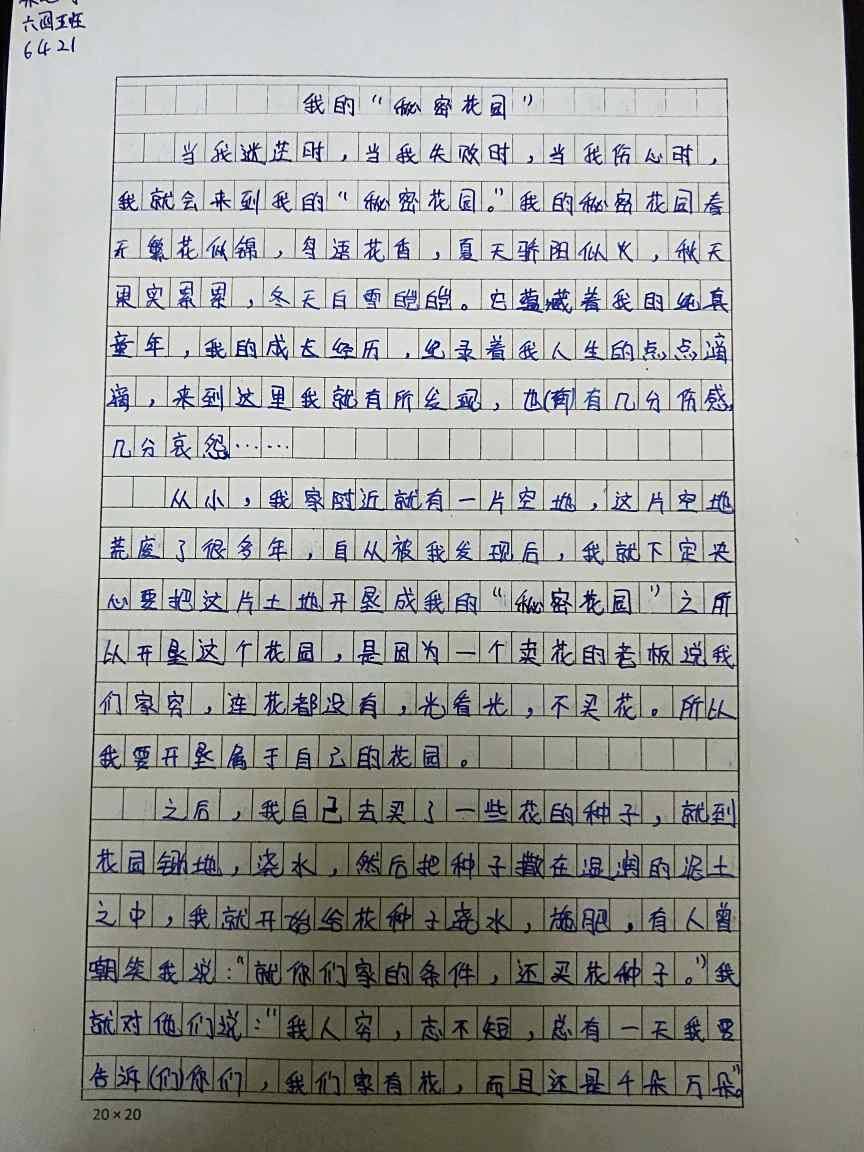 六四班
6421
我的“秘密花园”
当我迷茫时，当我失败时，当我伤心时，
我就会来到我的“秘密花园。”我的秘密花园春
天繁花似锦，鸟语花香，夏天骄阳似火，秋天
果实累累，冬天白雪皑皑。它蕴藏着我的纯真
童年，我的成长经历，纪录着我人生的点点滴
滴，来到这里我就有所发现，也有几分伤感，
几分哀怨……
从小，我家附近就有一片空地，这片空地
荒废了很多年，自从被我发现后，我就下定决
心要把这片土地开垦成我的“秘密花园”之所
以开垦这个花园，是因为一个卖花的老板说我
们家穷，连花都没有，光看光，不买花。所以
我要开垦属于自己的花园。
之后，我自己去买了一些花的种子，就到
花园锄地，浇水，然后把种子撒在湿润的泥土
之中，我就开始给花种子浇水，施肥，有人曾
嘲笑我说：“就你们家的条件，还买花种子。”我
就对他们说：“我人穷，志不短，总有一天我要
告诉(们)你们，我们家有花，而且还是千朵万朵。”
20×20